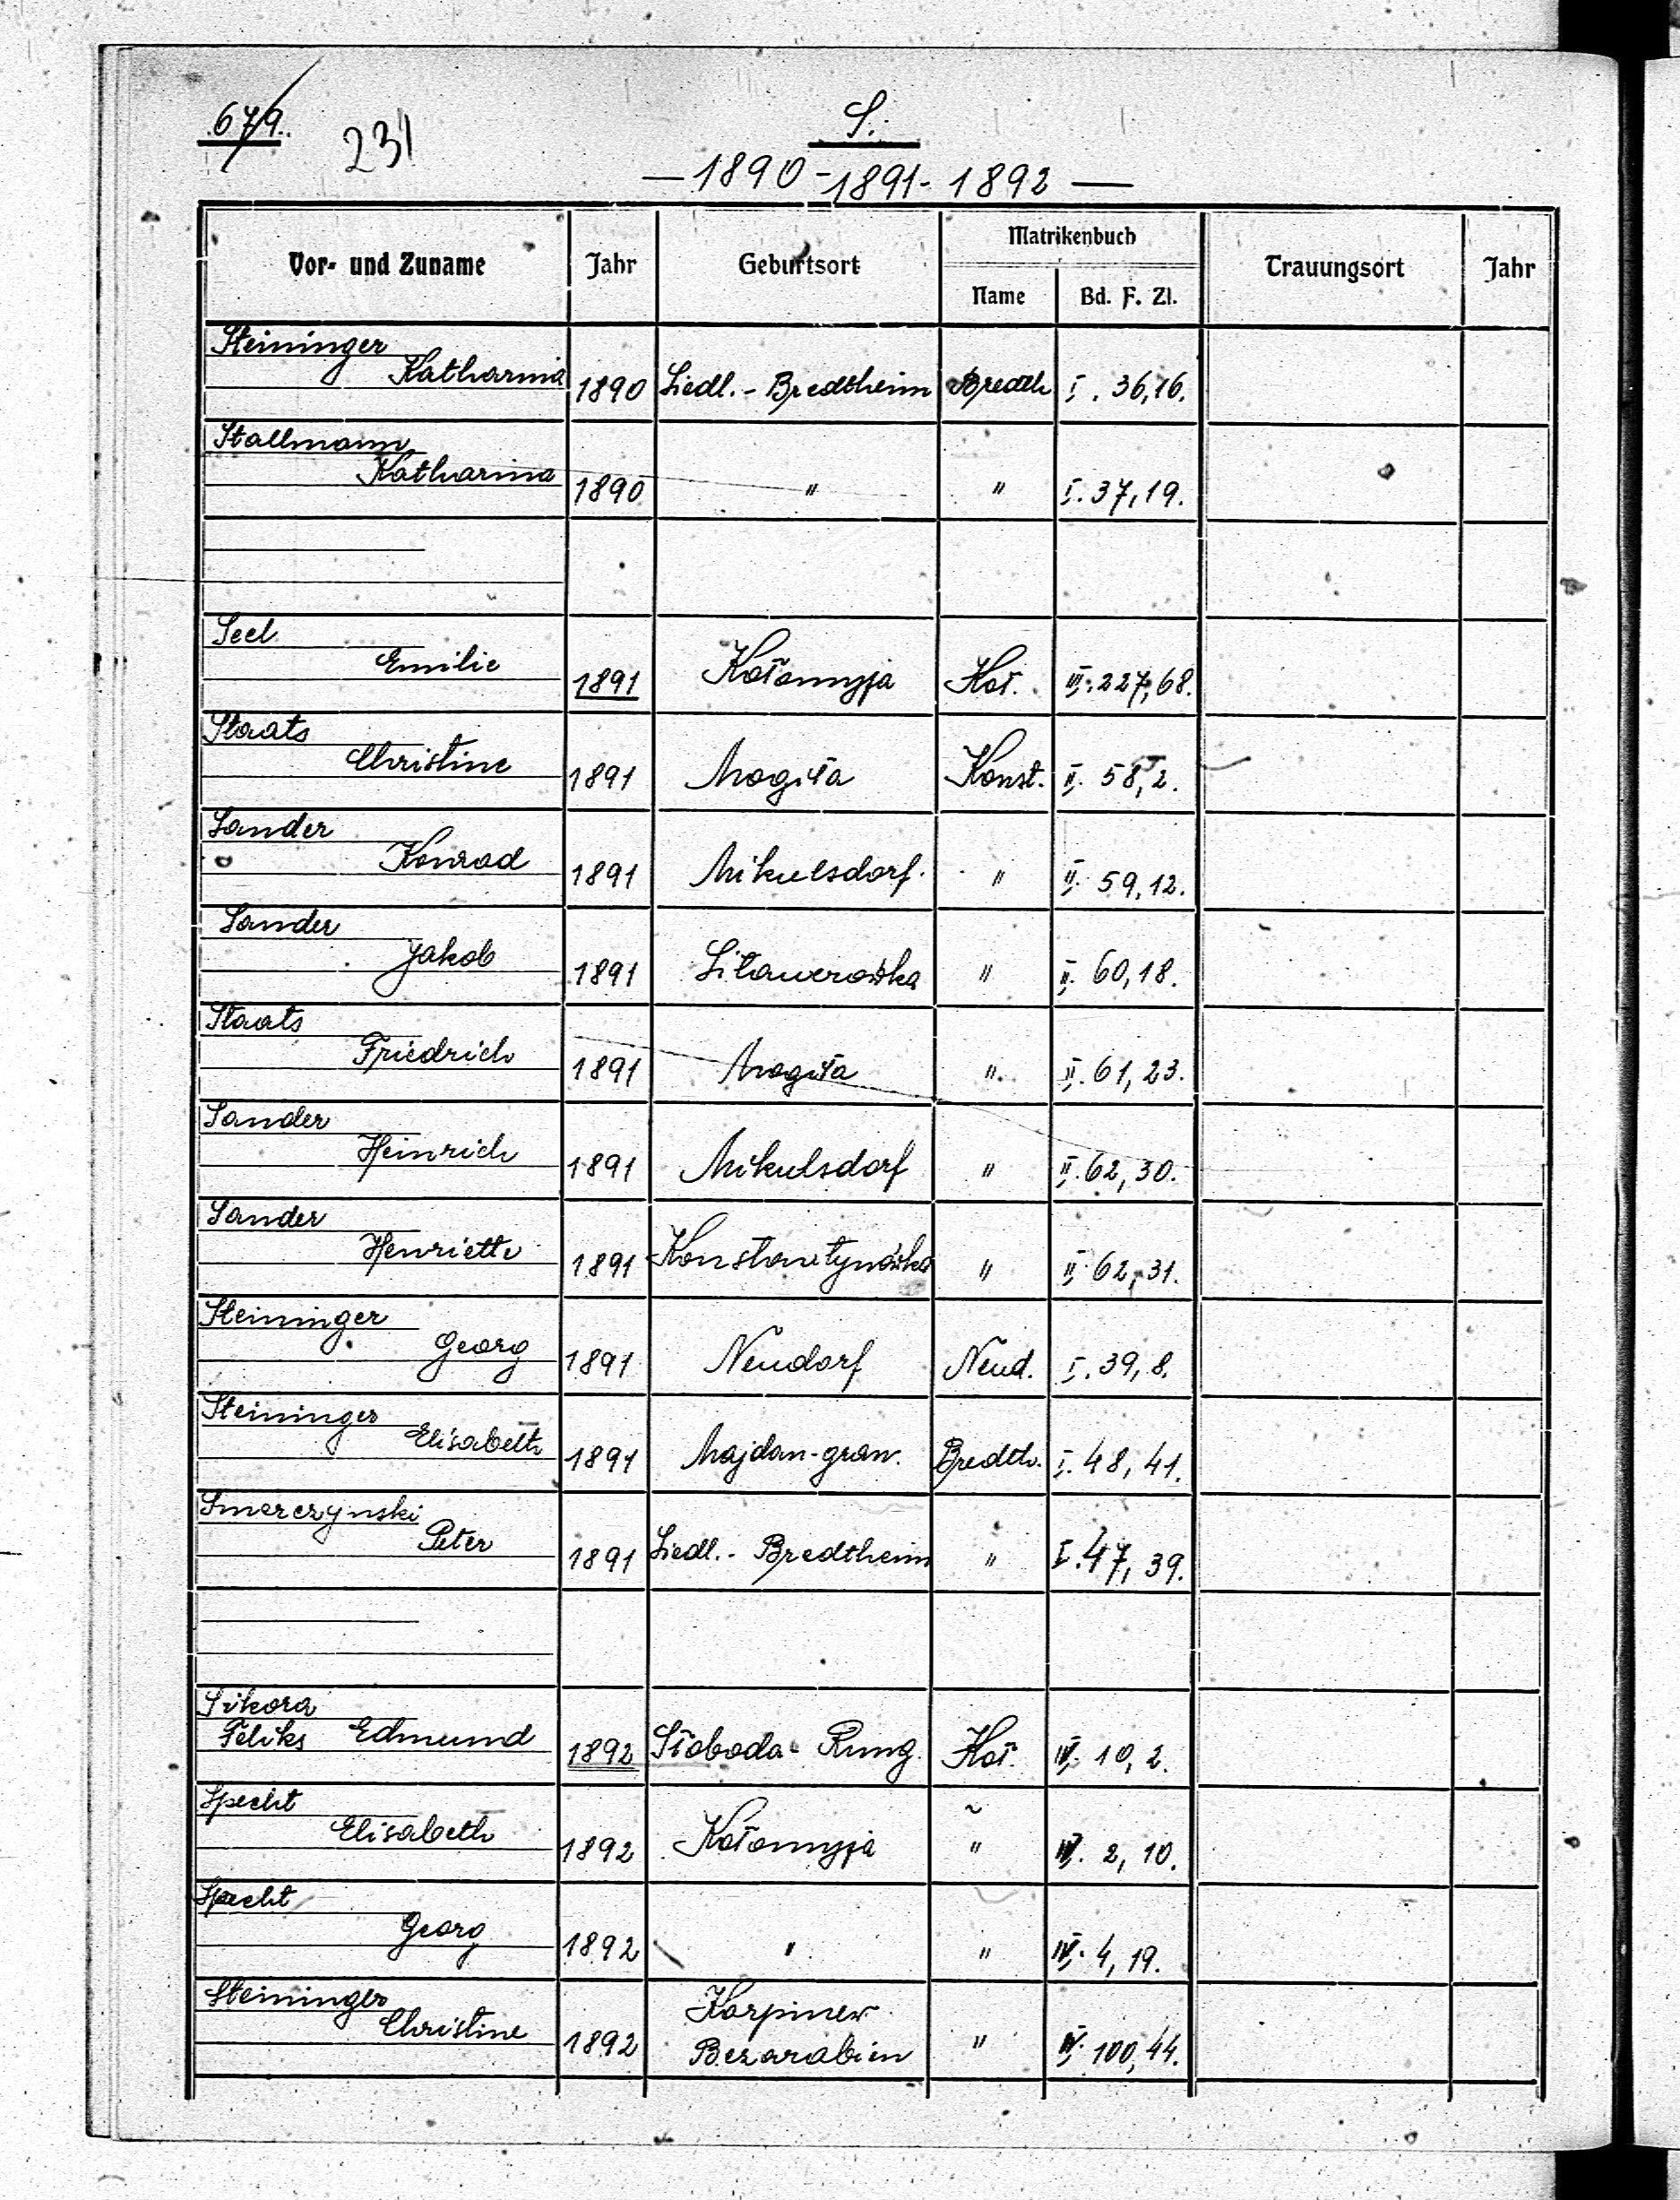 679.
231
S.
— 1890-1891-1892 —
Vor- und Zuname Jahr Geburtsort Matrikenbuch Trauungsort Jahr
Name Bd. F. Zl.
Steininger
Katharina 1890 Siedl.- Bredtheim Bredth I. 36,16.
Stallmann
Katharina 1890 " " I. 37,19.
Seel
Emilie 1891 Kołomyja Koł. III. 227,68.
Staats
Christine 1891 Mogiła Konst. II. 58,2.
Sander
Konrad 1891 Mikulsdorf. " II. 59,12.
Sander
Jakob 1891 Sitauerówka " II. 60,18.
Staats
Friedrich 1891 Mogiła " II. 61,23.
Sander
Heinrich 1891 Mikulsdorf " II. 62,30.
Sander
Henriette 1891 Konstantynówka " II. 62,31.
Steininger
Georg 1891 Neudorf Neud. I. 39,8.
Steininger
Elisabeth 1891 Majdan-gran. Bredth. I. 48,41.
Smerczynski
Peter 1891 Siedl.- Bredtheim " I. 47,39.
Sikora
Feliks Edmund 1892 Słoboda- Rung. Koł. IV. 10,2.
Specht
Elisabeth 1892 Kołomyja " IV. 2,10.
Specht
Georg 1892 " " IV. 4,19.
Steininger
Christine 1892 Karpinew
Bezarabien " IV. 100,44.